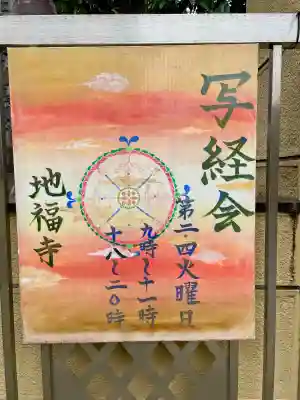 写経会
第二・四火曜日
九時〜十一時
十八〜二〇時
地福寺